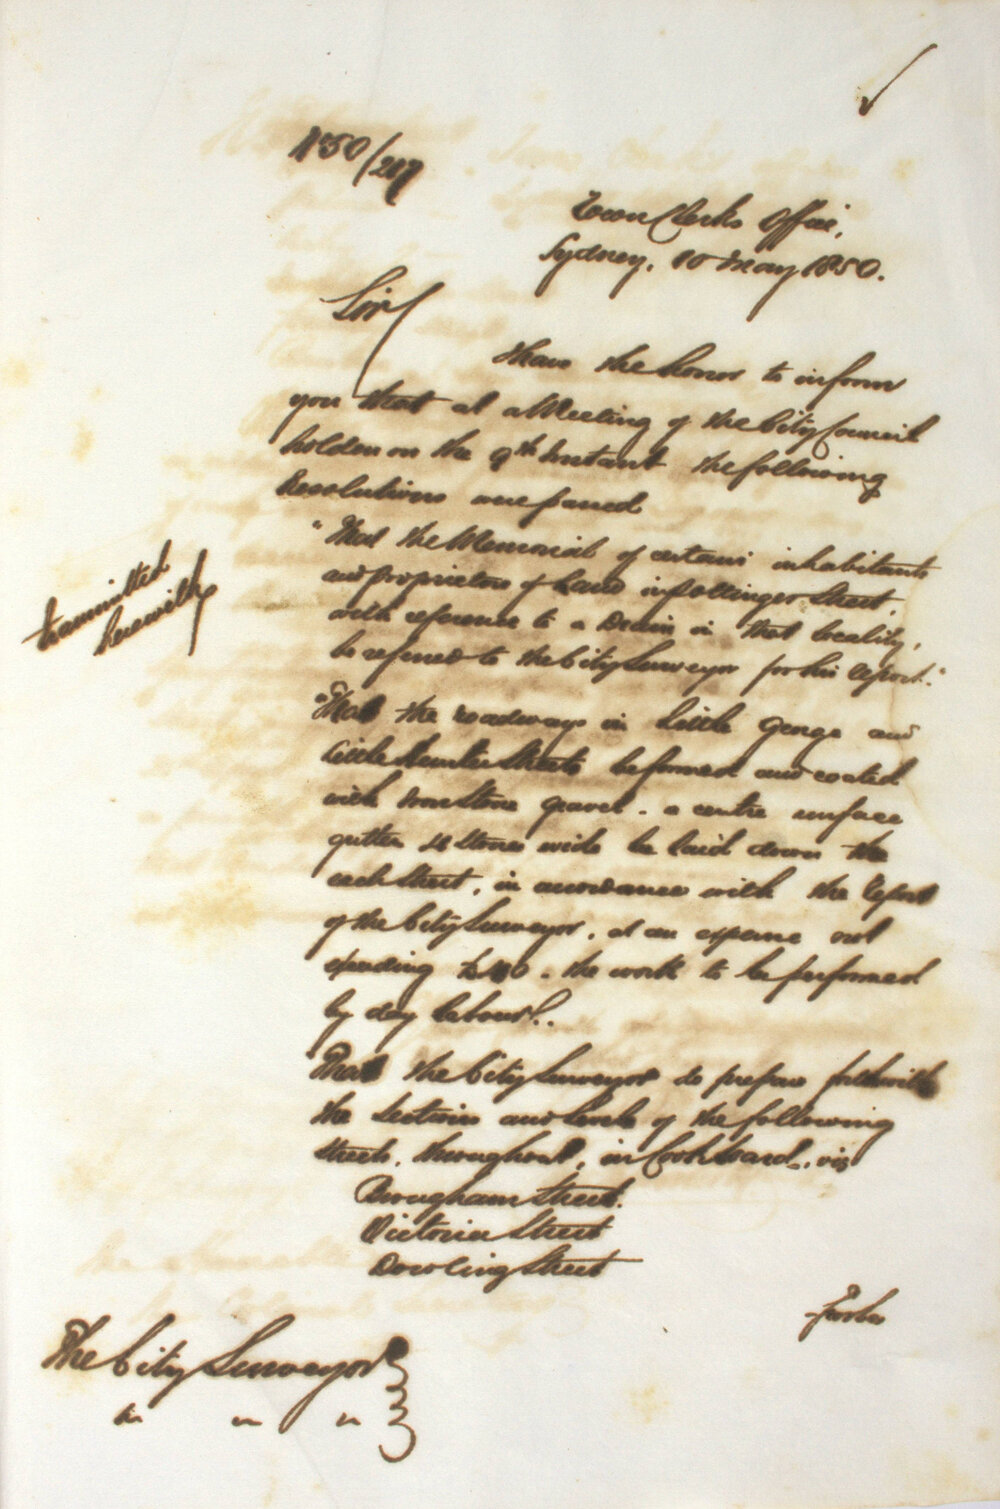 No 50/217
Town Clerks Office,
Sydney. 10 May 1850.
Sir
I have the honor to inform
you that at a Meeting of the City Council
holden on the 9th Instant the following
Resolutions were passed
"That the Memorial of certain inhabitants
and proprietors of Land in Pottinger Street,
with reference to a Drain in that locality,
be referred to the City Surveyor for his report."
transmitted
herewith
"That the roadways in Little George and
Little Hunter Streets be formed and coated
with Iron Stone gravel - a centre surface
gutter stones wide be laid down the
each Street, in accordance with the report
of the City Surveyor, at an expense not
the work to be performed
by day labour".
That the City Surveyor do prepare forthwith
the Sections and levels of the following
streets, throughout, in Cook Ward, viz
Brougham Street.
Victoria Street
Dowling Street
Forbes
The City Surveyor